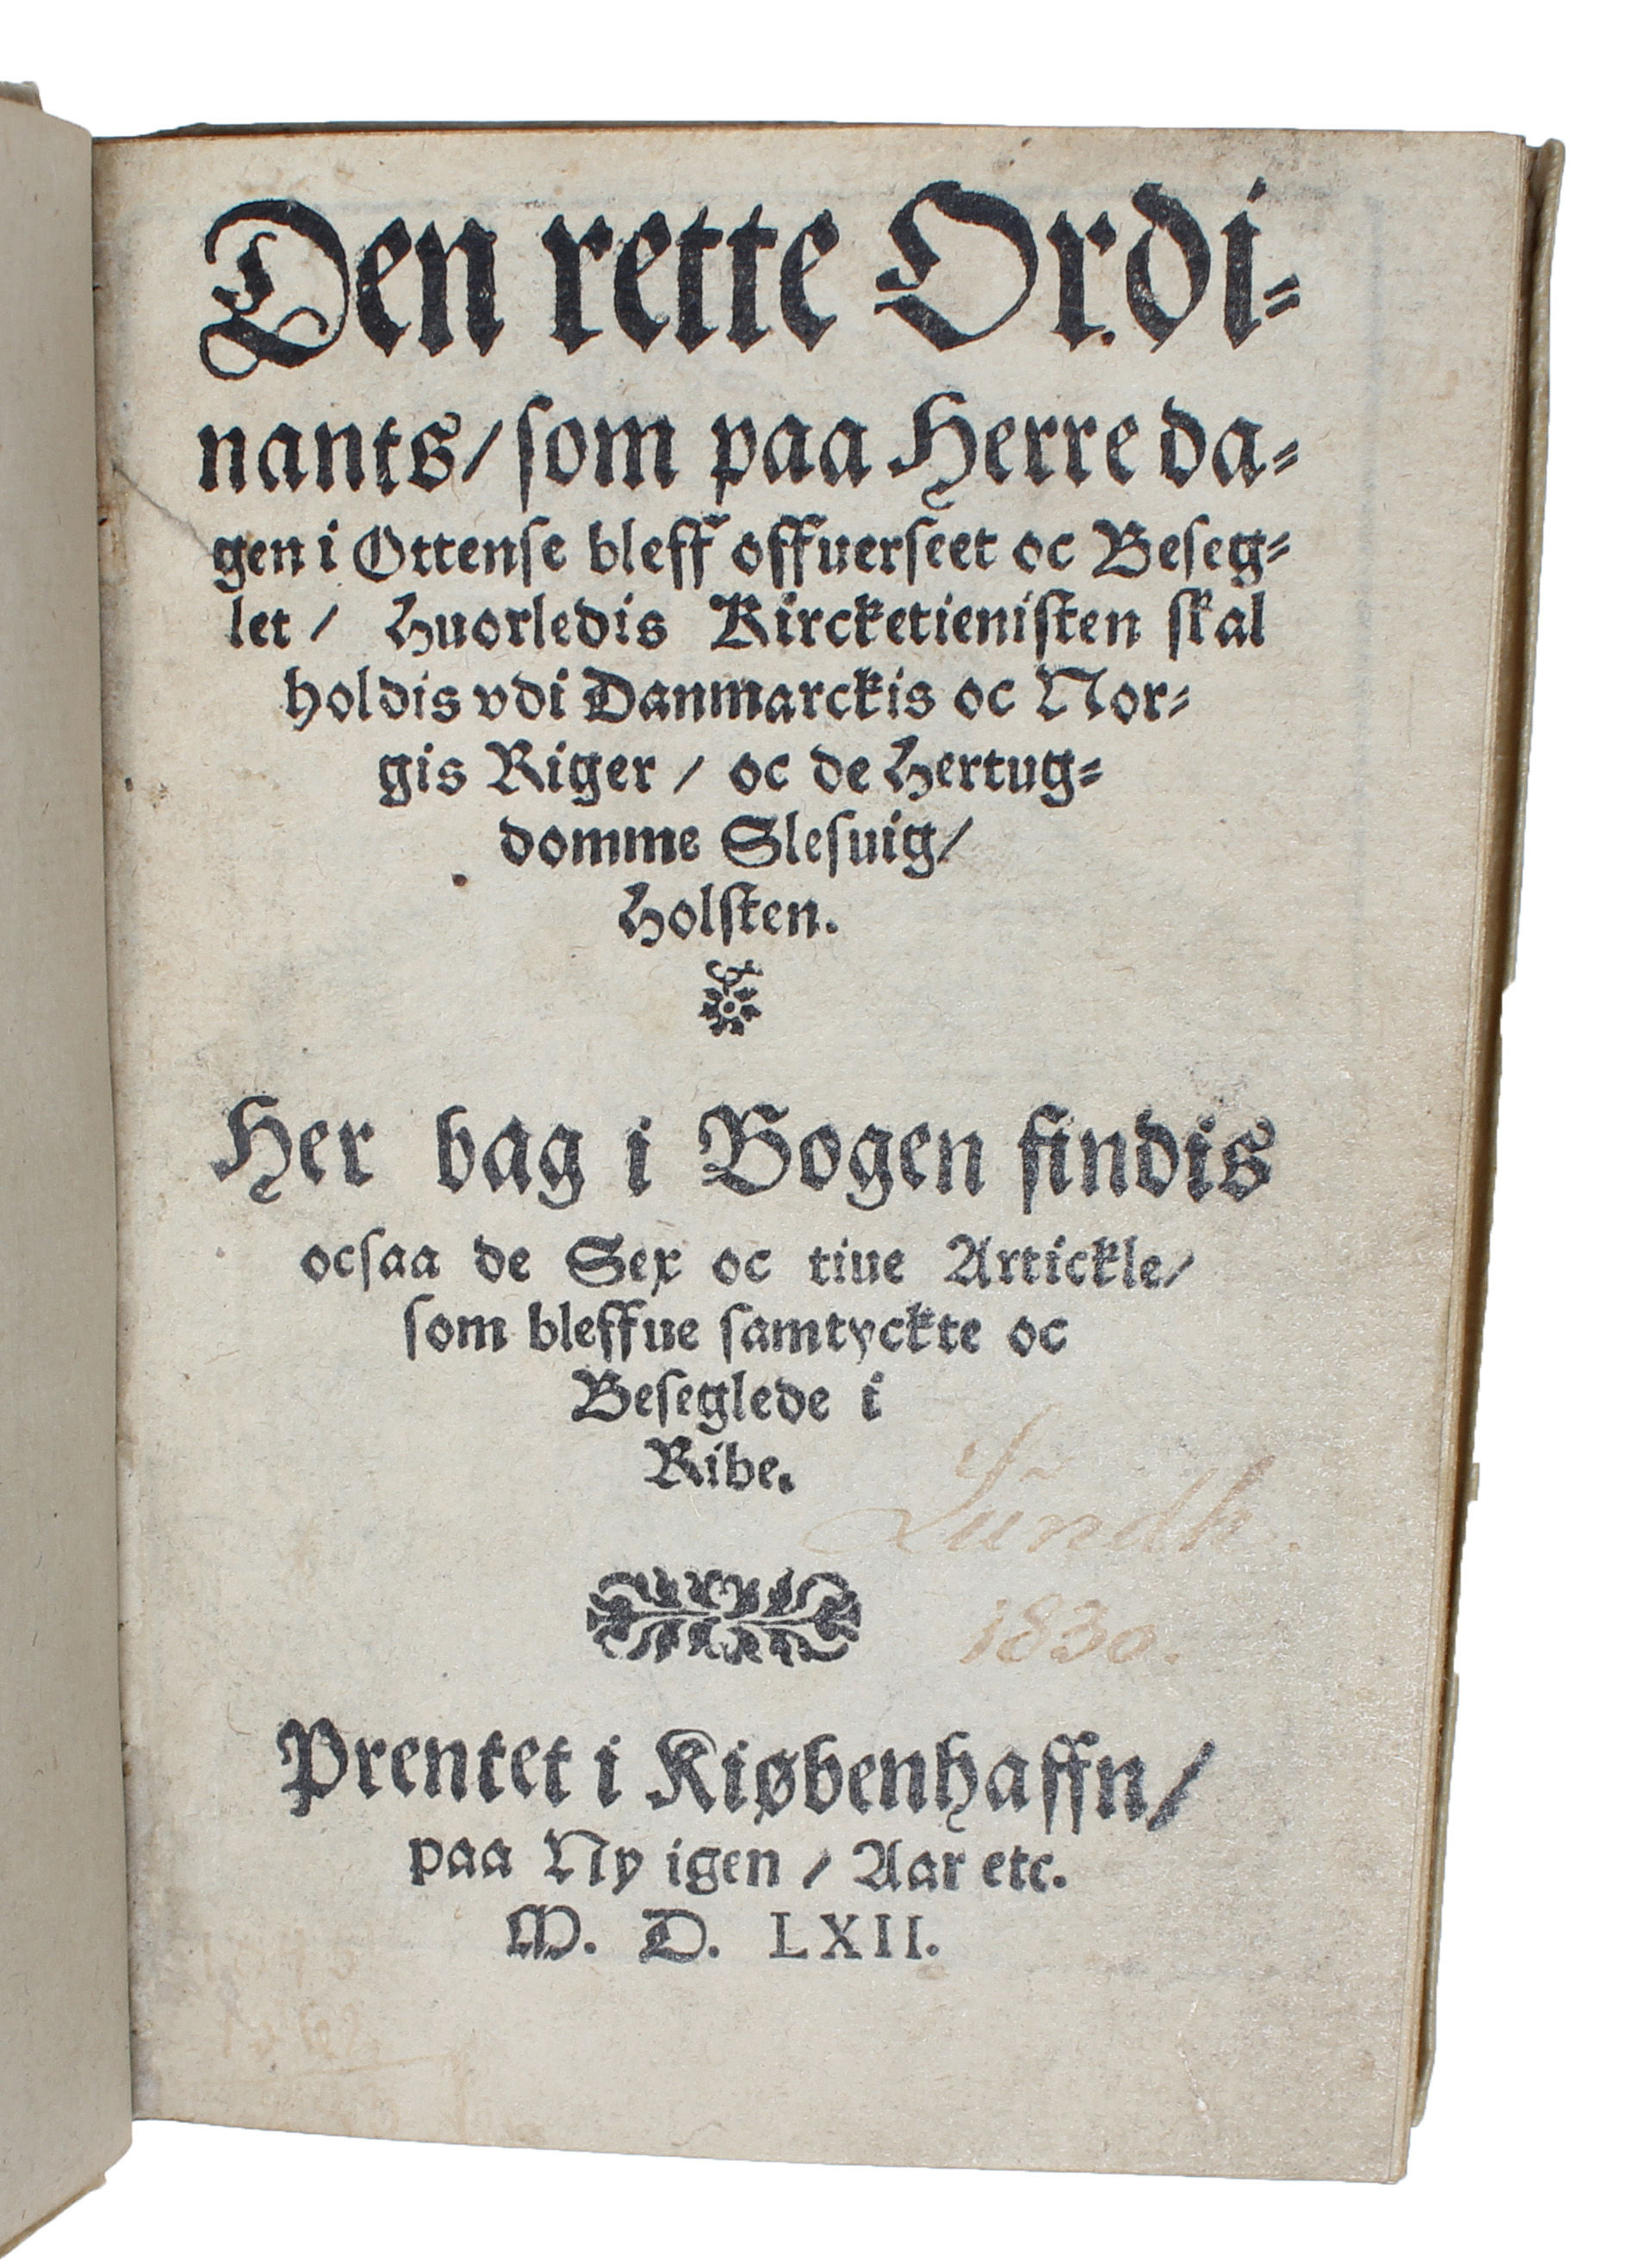 Den rette Ordi⸗
nants/ som paa Herre da⸗
gen i Ottense bleff offuerseet oc Beseg⸗
let/ Huorledis Kircketienisten skal
holdis vdi Danmarckis oc Nor⸗
gis Riger/ oc de Hertug⸗
domme Slesuig/
Holsten.
Her bag i Bogen findis
ocsaa de Sex oc tiue Artickle/
som bleffue samtyckte oc
Beseglede i
Ribe.
Lundh.
1830.
Prentet i Kiøbenhaffn/
paa Ny igen/ Aar etc.
M. D. LXII.